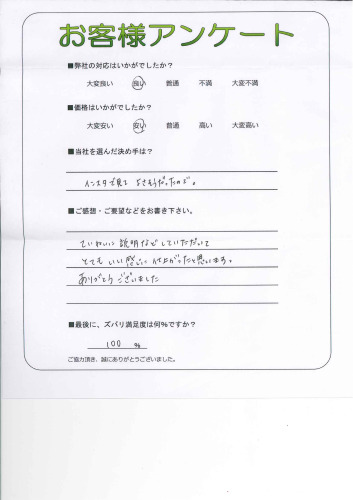 お客様アンケート
■弊社の対応はいかがでしたか？
大変良い 良い 普通 不満 大変不満
■価格はいかがでしたか？
大変安い 安い 普通 高い 大変高い
■当社を選んだ決め手は？
インスタで見て よさそうだったので。
■ご感想・ご要望などをお書き下さい。
ていねいに説明などしていただいて
とても いい感じに 仕上がったと思います。
ありがとう ございました
■最後に、ズバリ満足度は何%ですか？
100 %
ご協力頂き、誠にありがとうございました。